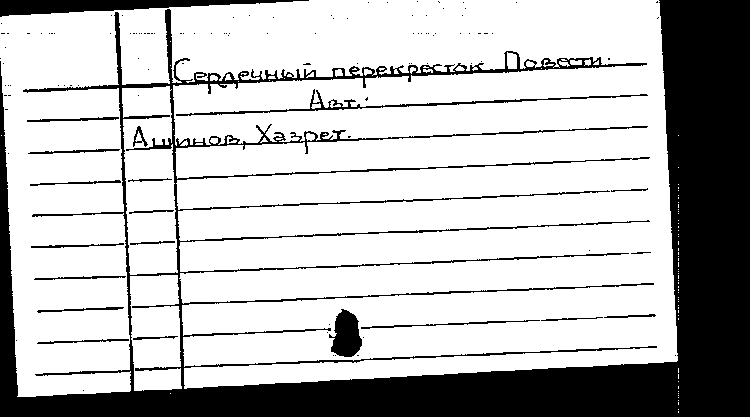 Сердечный перекресток Повести.
Авт.:
Ашинов, Хазрет.